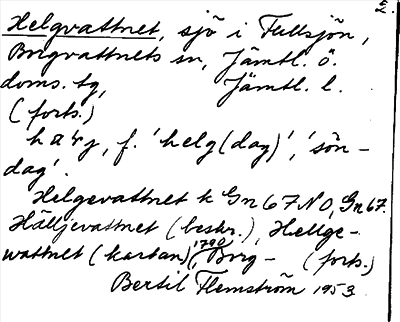 2.
Helgvattnet, sjö i Fullsjön,
Borgvattnets sn, Jämtl. ö.
doms. tg, Jämtl. l.
(forts.)
f. 'helg(dag)', 'sön-
dag'.
Helgevattnet k Gn 67 NO, Gn 67.
Hälljevattnet (beskr.), Hellge-
wattnet (kartan) 1790, Borg- (forts.)
Bertil Flemström 1953